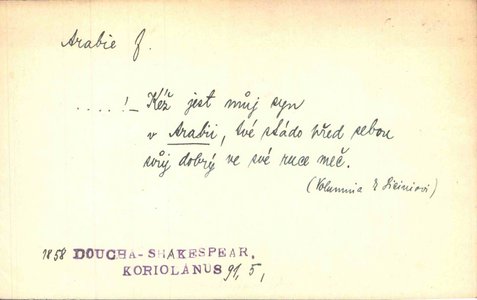 Arabie f.
....!– Kéž jest můj syn
v Arabii, tvé stádo před sebou
svůj dobrý ve své ruce meč.
(Volumnia k Siciniovi)
1858 DOUCHA-SHAKESPEAR,
KORIOLANUS 91, 5,